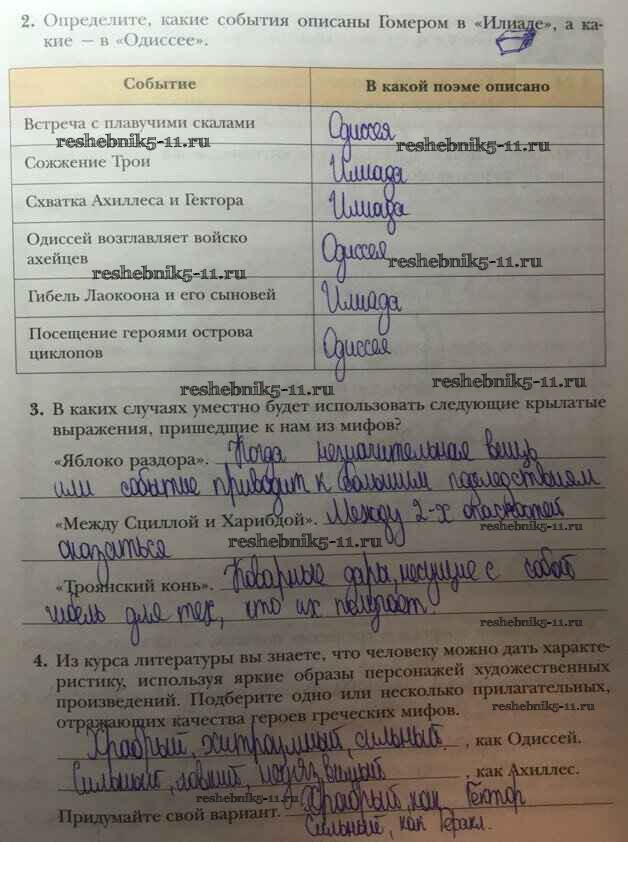 2. Определите, какие события описаны Гомером в «Илиаде», а ка-
кие — в «Одиссее».
Событие
В какой поэме описано
Встреча с плавучими скалами
Одиссея
reshebnik5-11.ru
reshebnik5-11.ru
Сожжение Трои
Илиада
Схватка Ахиллеса и Гектора
Илиада
Одиссей возглавляет войско
ахейцев
Одиссея
reshebnik5-11.ru
reshebnik5-11.ru
Гибель Лаокоона и его сыновей
Илиада
Посещение героями острова
циклопов
Одиссея
reshebnik5-11.ru
reshebnik5-11.ru
3. В каких случаях уместно будет использовать следующие крылатые
выражения, пришедшие к нам из мифов?
«Яблоко раздора». Когда незначительная вещь
или событие приводит к большим последствиям
«Между Сциллой и Харибдой». Между 2-х опасностей
reshebnik5-11.ru
оказаться
reshebnik5-11.ru
«Троянский конь». Коварные дары, несущие с собой
reshebnik5-11.ru
гибель для тех, кто их получает.
reshebnik5-11.ru
4. Из курса литературы вы знаете, что человеку можно дать характе-
ристику, используя яркие образы персонажей художественных
произведений. Подберите одно или несколько прилагательных,
reshebnik5-11.ru
отражающих качества героев греческих мифов.
Храбрый, хитроумный, сильный, как Одиссей.
Сильный, ловкий, неуязвимый, как Ахиллес.
reshebnik5-11.ru
Придумайте свой вариант. Храбрый, как Гектор
Сильный, как Геракл.